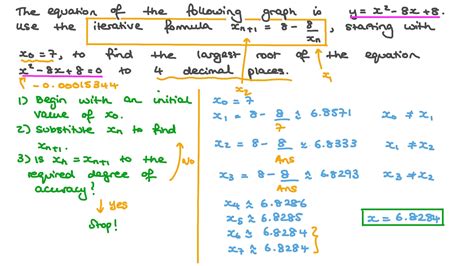 The equation of the following graph is y = x² - 8x + 8.
Use the iterative formula xₙ₊₁ = 8 - 8/xₙ, starting with
x₀ = 7, to find the largest root of the equation
x² - 8x + 8 = 0 to 4 decimal places.
x₂
x₁
-0.00015344
1) Begin with an initial
value of x₀.
2) Substitute xₙ to find
xₙ₊₁.
3) Is xₙ = xₙ₊₁ to the
required degree of
accuracy?
No
↓ yes
Stop!
x₀ = 7
x₁ = 8 - 8/7 ≈ 6.8571 x₀ ≠ x₁
x₂ = 8 - 8/Ans ≈ 6.8333 x₁ ≠ x₂
x₃ = 8 - 8/Ans ≈ 6.8293 x₃ ≠ x₂
x₄ ≈ 6.8286
x₅ ≈ 6.8285
x₆ ≈ 6.8284
x₇ ≈ 6.8284
x = 6.8284